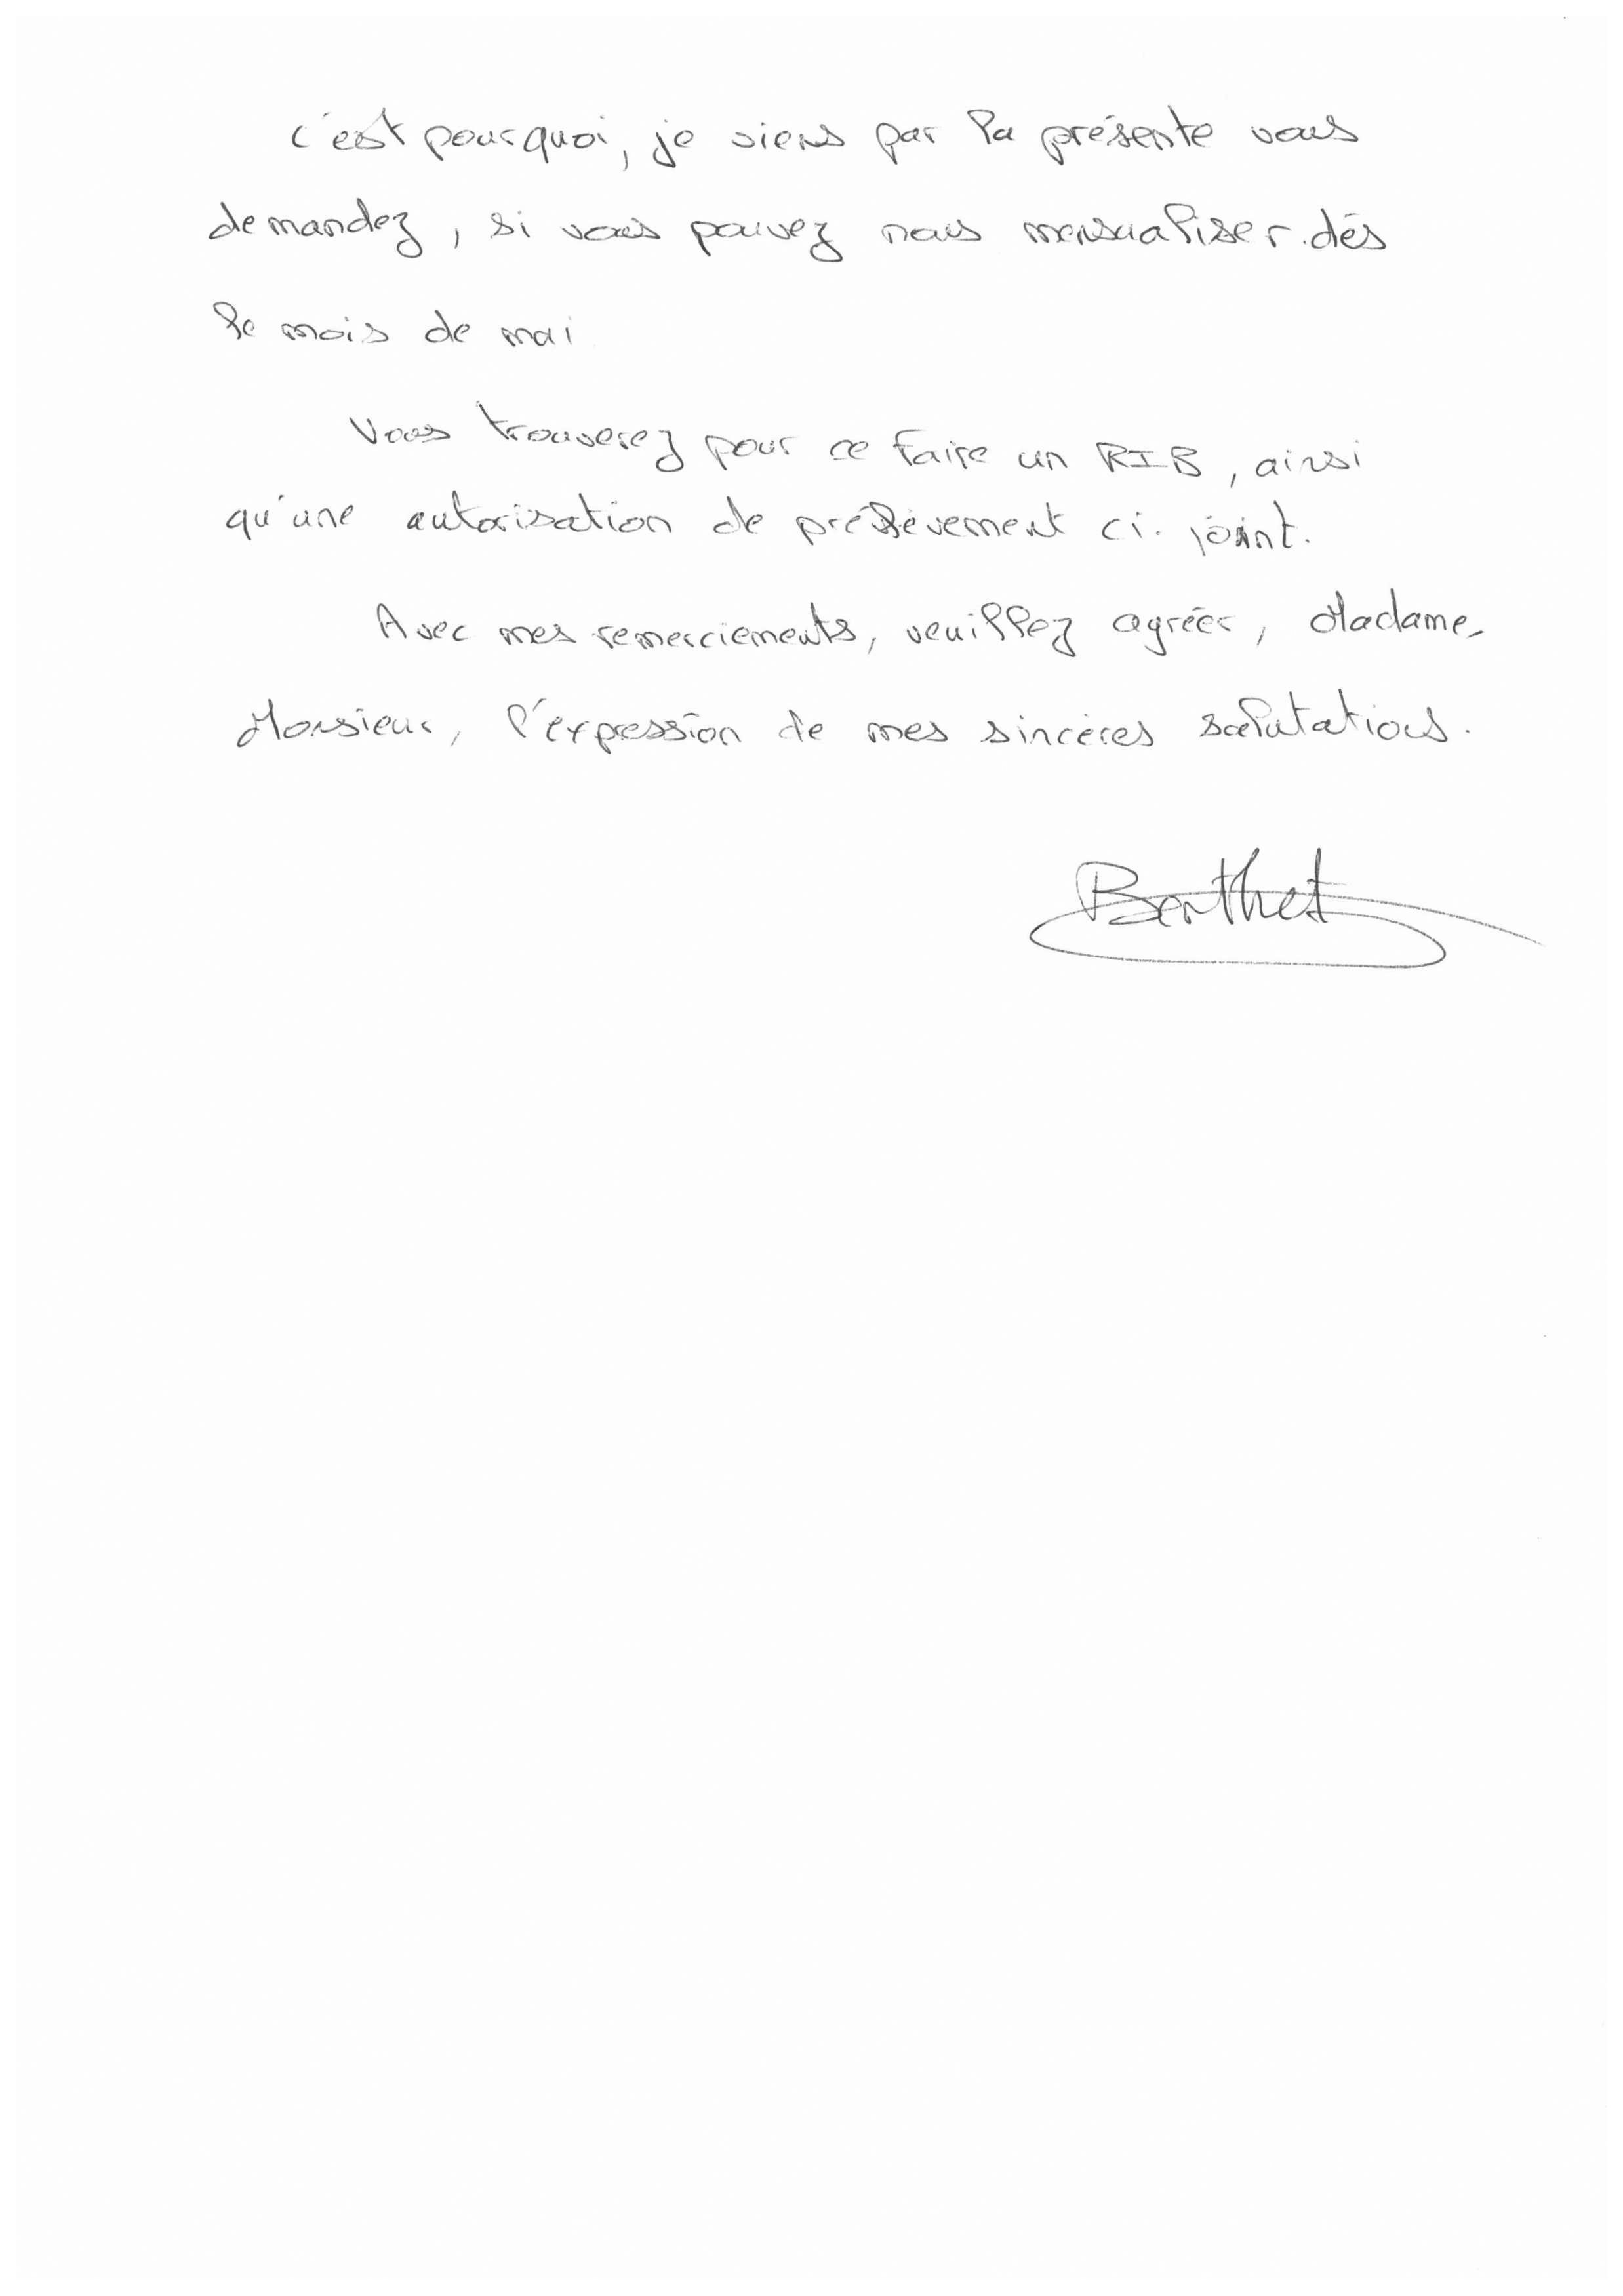 c'est pourquoi, je viens par la présente vous
demandez, si vous pouvez nous mensualiser dès
le mois de mai
Vous trouverez pour ce faire un RIB, ainsi
qu'une autorisation de prélèvement ci-joint.
Avec mes remerciements, veuillez agréer, Madame,
Monsieur, l'expression de mes sincères salutations.
Berthet